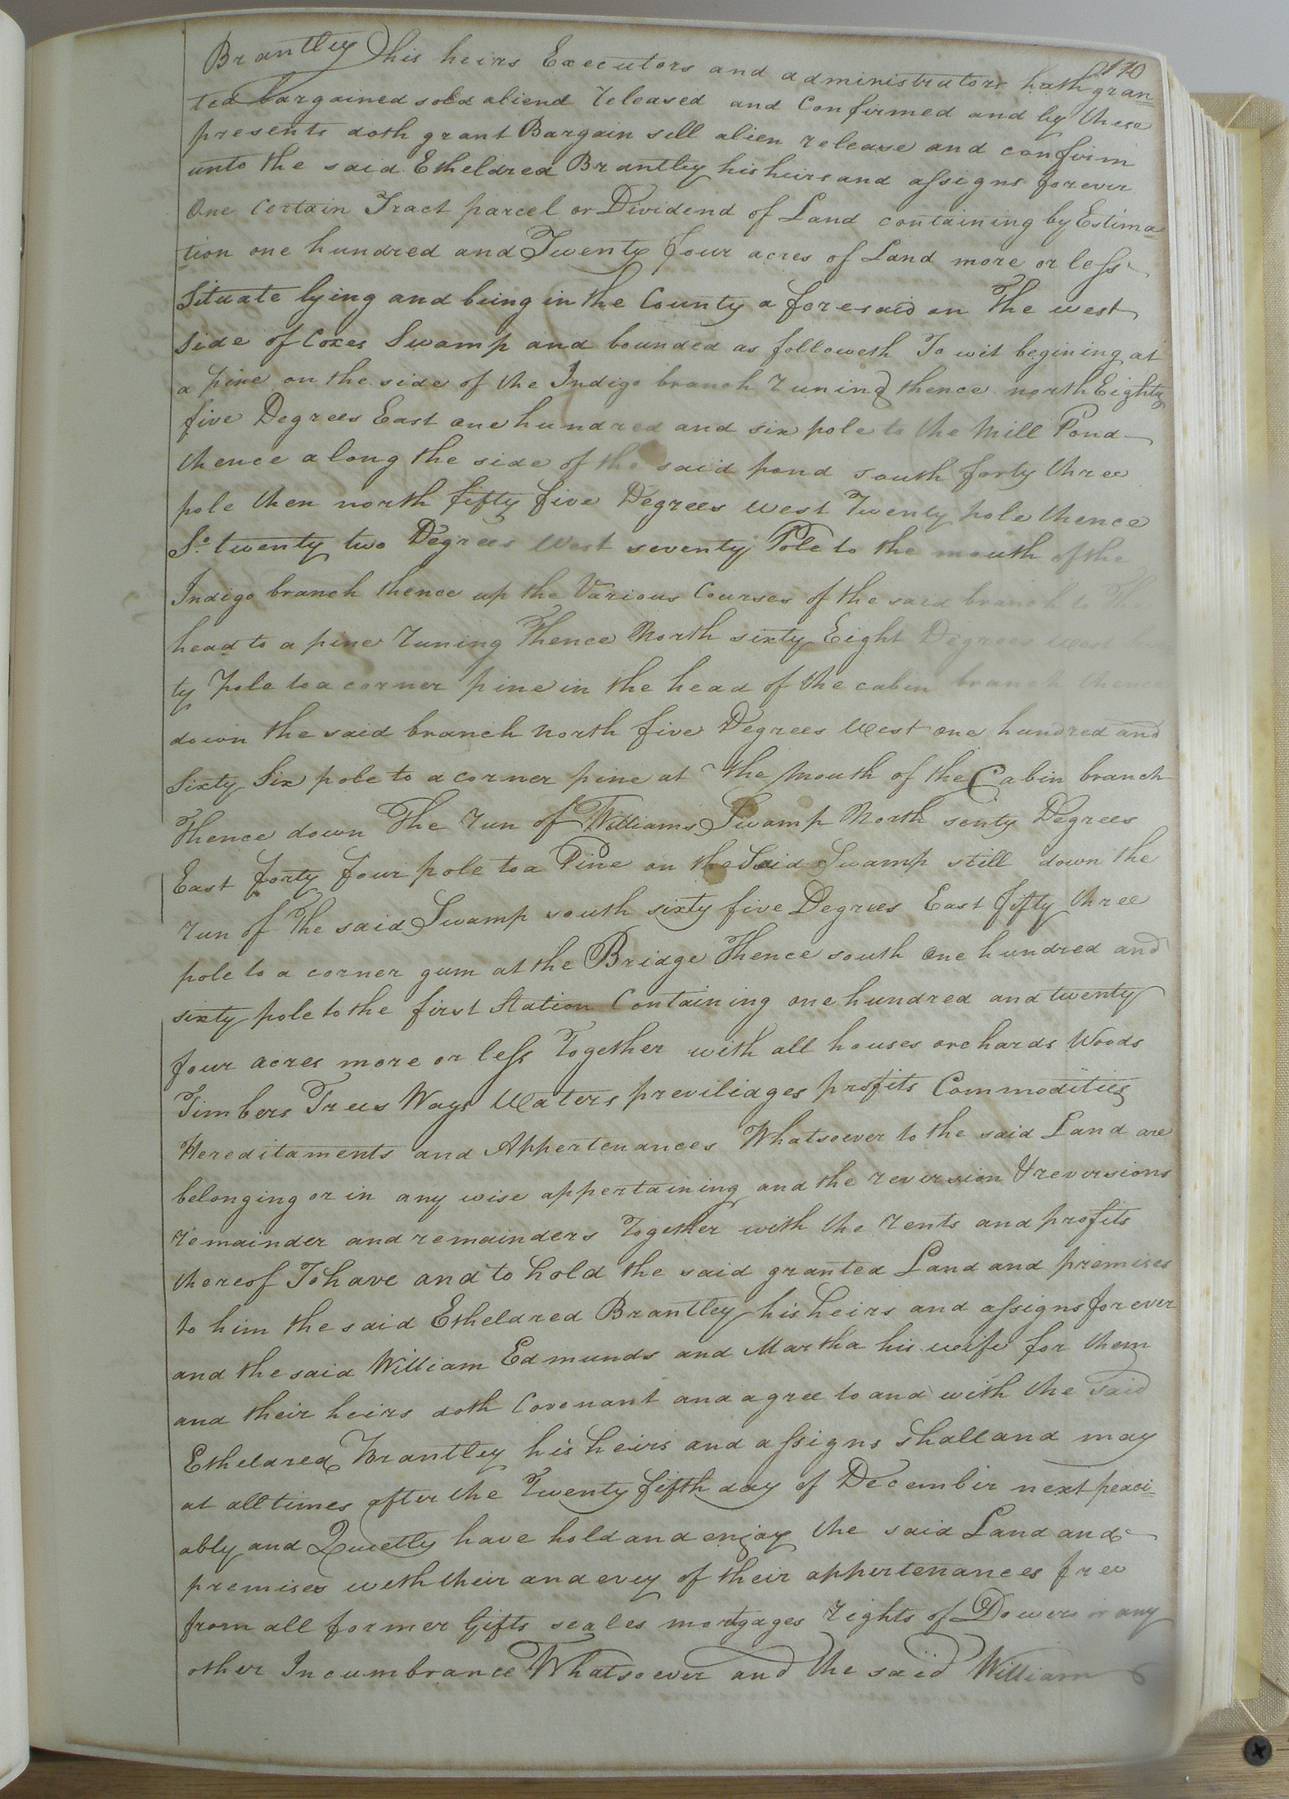 170
Brantley his heirs Executors and administrators hath gran
ted bargained sold aliend released and Confirmed and by these
presents doth grant Bargain sell alien release and confirm
unto the said Etheldred Brantley his heirs and assigns forever
One Certain Tract parcel or Dividend of Land containing by Estima
tion one hundred and Twenty four acres of Land more or less
Situate lying and being in the County a foresaid on The west
Side of Coxes Swamp and bounded as followeth To wit begining at
a pine on the side of the Indigo branch runing thence north Eighty
five Degrees East one hundred and six pole to the Mill Pond
thence along the side of the said pond south forty three
pole then north fifty five Degrees west Twenty pole thence
So. twenty two Degrees West seventy Pole to the mouth of the
Indigo branch thence up the Various Courses of the said branch to The
head to a pine runing Thence North sixty Eight Degrees west
ty pole to a corner pine in the head of the cabin branch thence
down the said branch north five Degrees West one hundred and
Sixty Six pole to a corner pine at the Mouth of the Cabin branch
Thence down The run of Williams Swamp North senty Degrees
East forty four pole to a Pine on the Said Swamp still down the
run of The said Swamp south sixty five Degrees East fifty three
pole to a corner gum at the Bridge Thence south One hundred and
sixty pole to the first Station Containing one hundred and twenty
four acres more or less Together with all houses orchards Woods
Timbers Trees Ways Waters previliages profits Commodities
Hereditaments and Appertenances Whatsoever to the said Land are
belonging or in any wise appertaining and the reversion & reversions
remainder and remainders Together with the rents and profits
thereof To have and to hold the said granted Land and premises
to him the said Etheldred Brantley his heirs and assigns forever
and the said William Edmunds and Martha his wife for them
and their heirs doth Covenant and agree to and with the said
Etheldred Brantley his heirs and assigns shall and may
at all times after the Twenty fifth day of December next peaci
ably and Quietly have hold and enjoy the said Land and
premises with their and evey of their appertenances free
from all former Gifts seales mortgages rights of Dowers or any
other Incumbrance Whatsoever and the said William